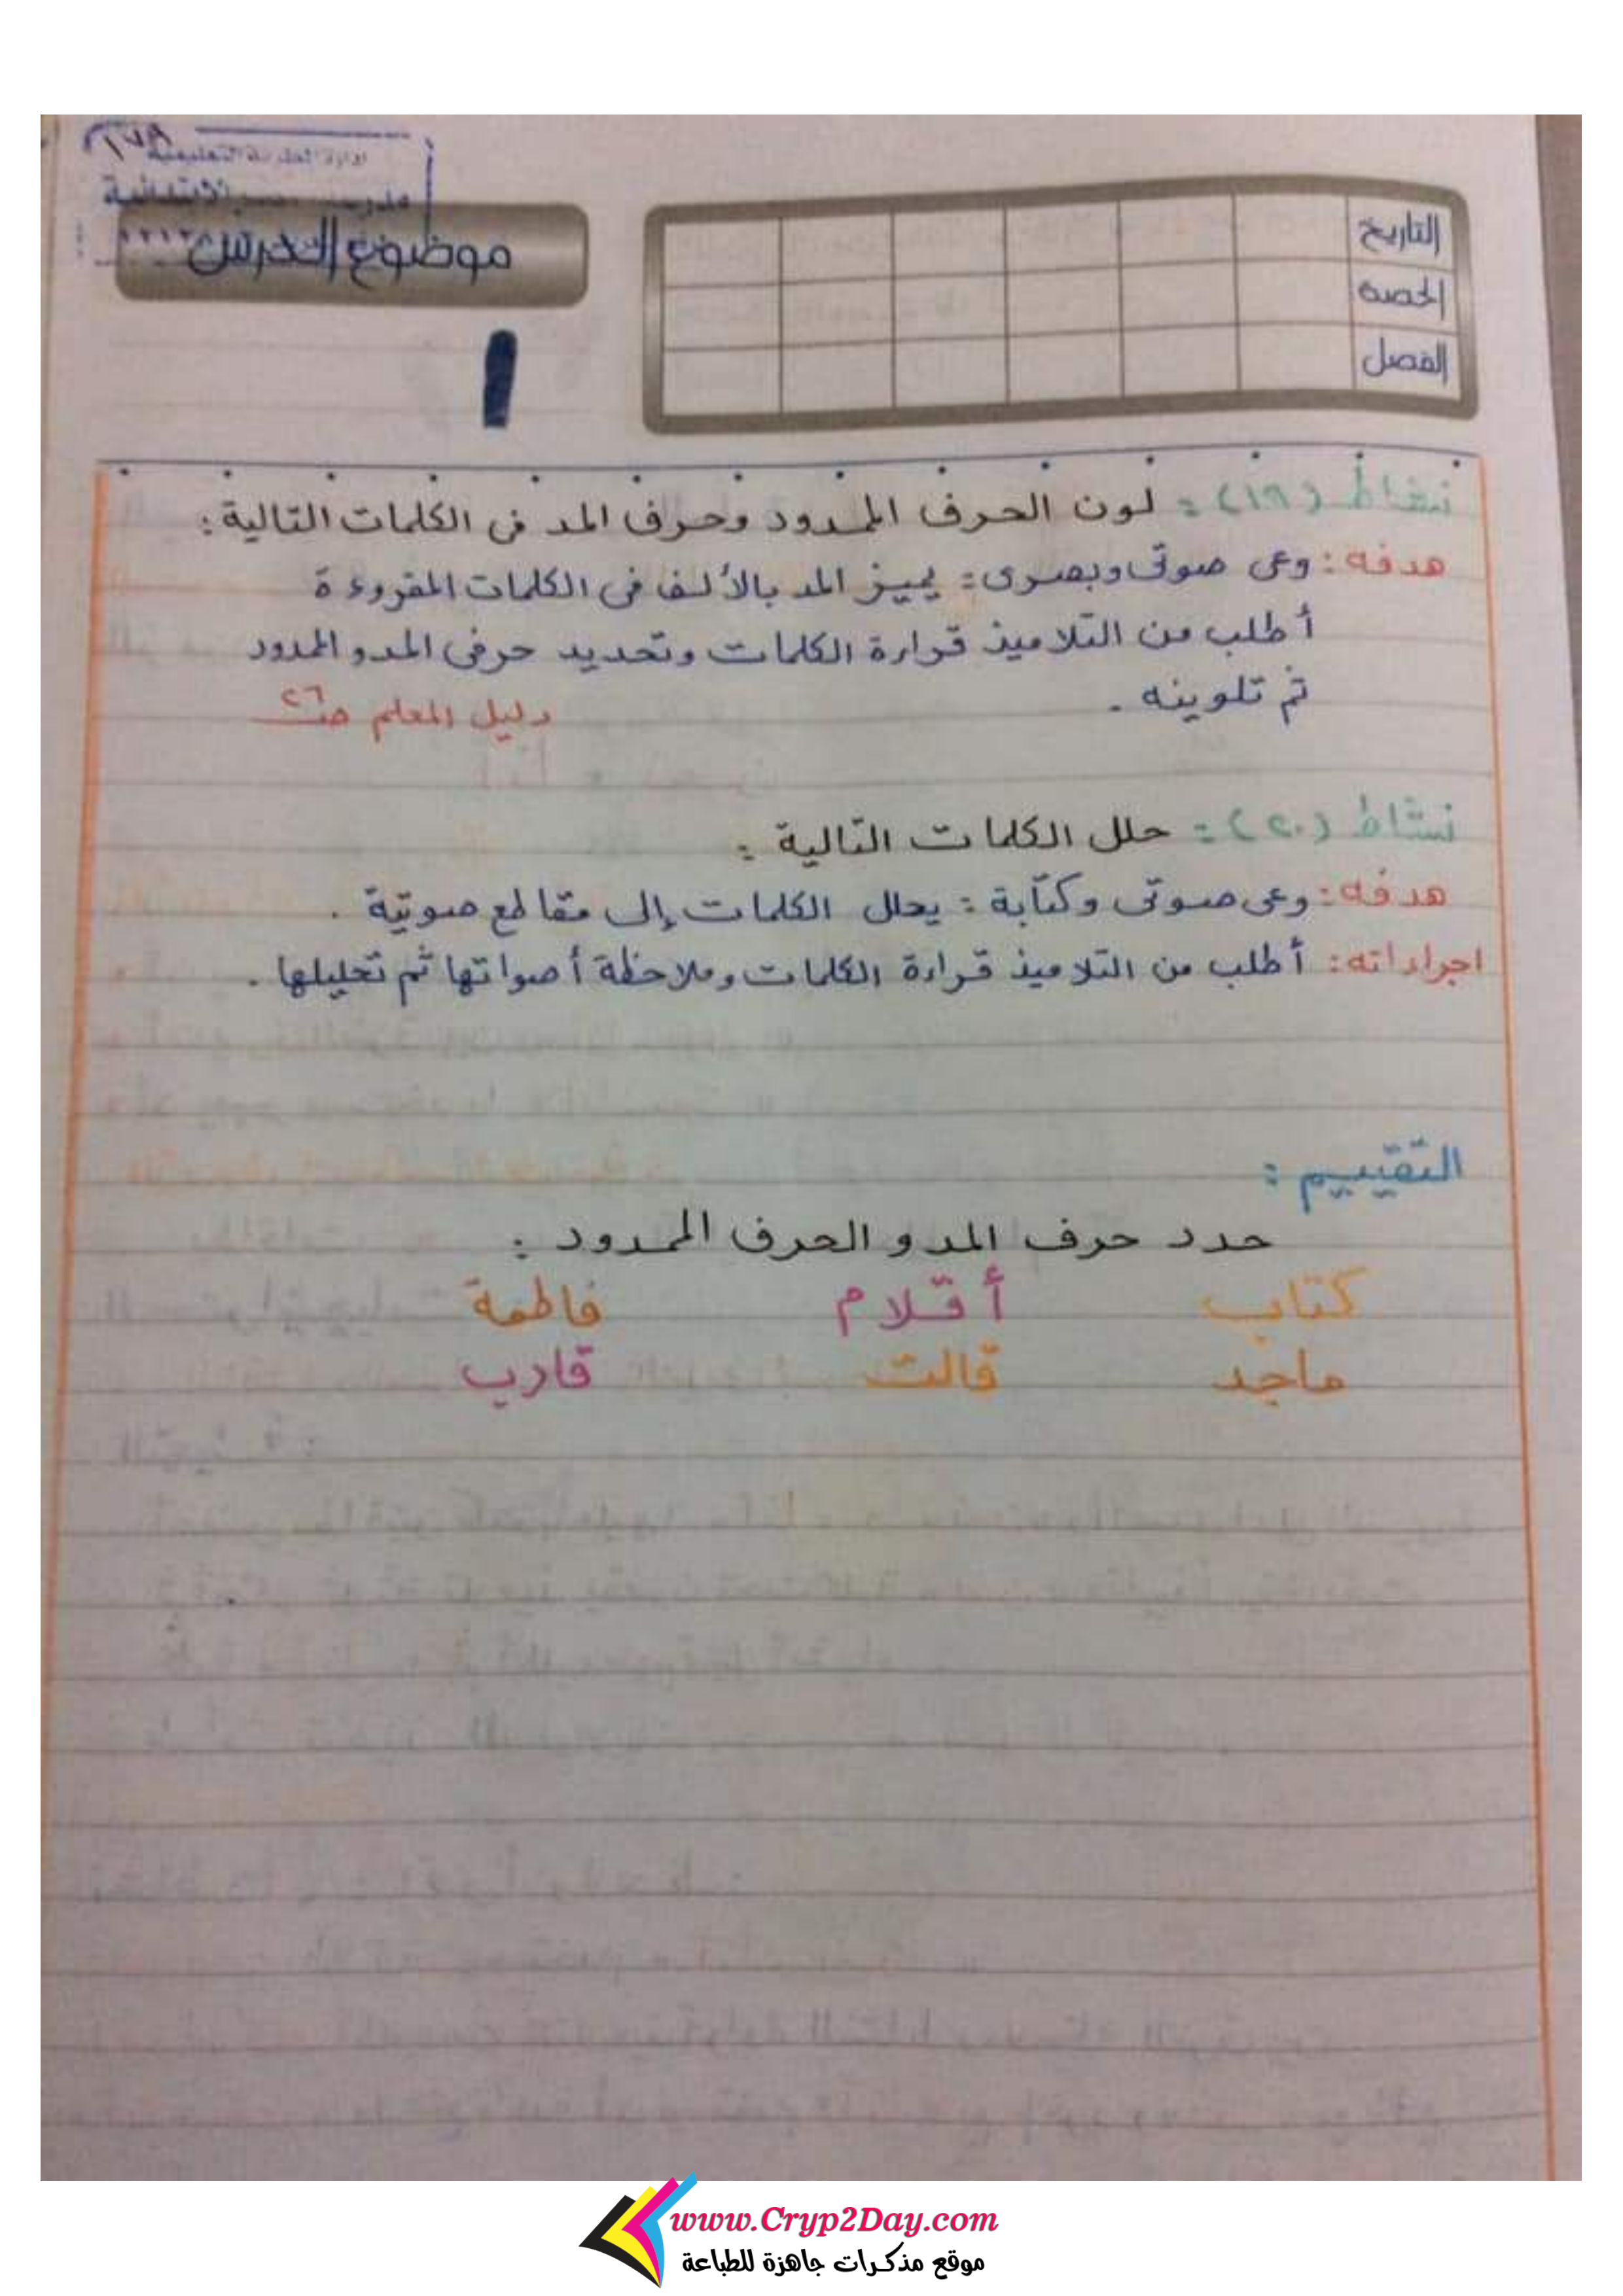 إدارة التعليمية
مدرسة الابتدائية
موضوع الدرس
التاريخ
الحصة
الفصل
ا
نشاط (١٩) : لون الحرف الممدود وحرف المد فى الكلمات التالية :
هدفه : وعى صوتى وبصرى : يميز المد بالألف فى الكلمات المقروءة
أطلب من التلاميذ قراءة الكلمات وتحديد حرفى المد و الممدود
ثم تلوينه .
دليل المعلم صـ ٢٦
نشاط (٢٠) : حلل الكلمات التالية :
هدفه : وعى صوتى وكتابة : يحلل الكلمات إلى مقاطع صوتية .
اجراءاته : أطلب من التلاميذ قراءة الكلمات وملاحظة أصواتها ثم تحليلها .
التقييم :
حدد حرف المد و الحرف الممدود :
كتاب أقلام فاطمة
ماجد قالت قارب
www.Cryp2Day.com
موقع مذكرات جاهزة للطباعة